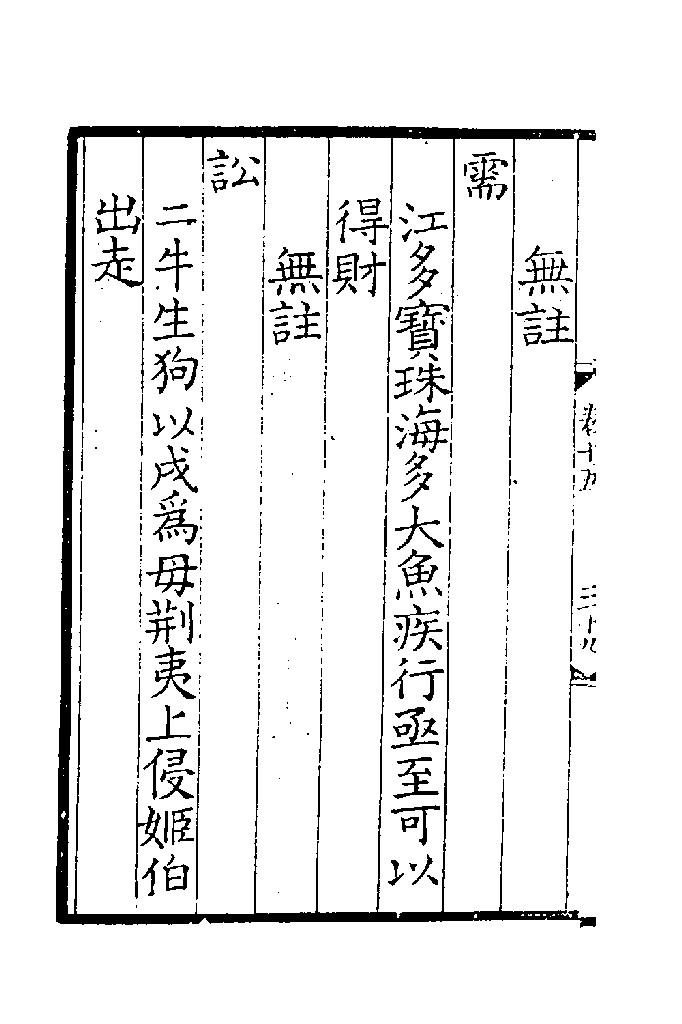 無註
需
江多寶珠海多大魚疾行亟至可以
得財
無註
訟
二牛生狗以戌為毋荆夷上侵姬伯
出走
卷十五
三十八